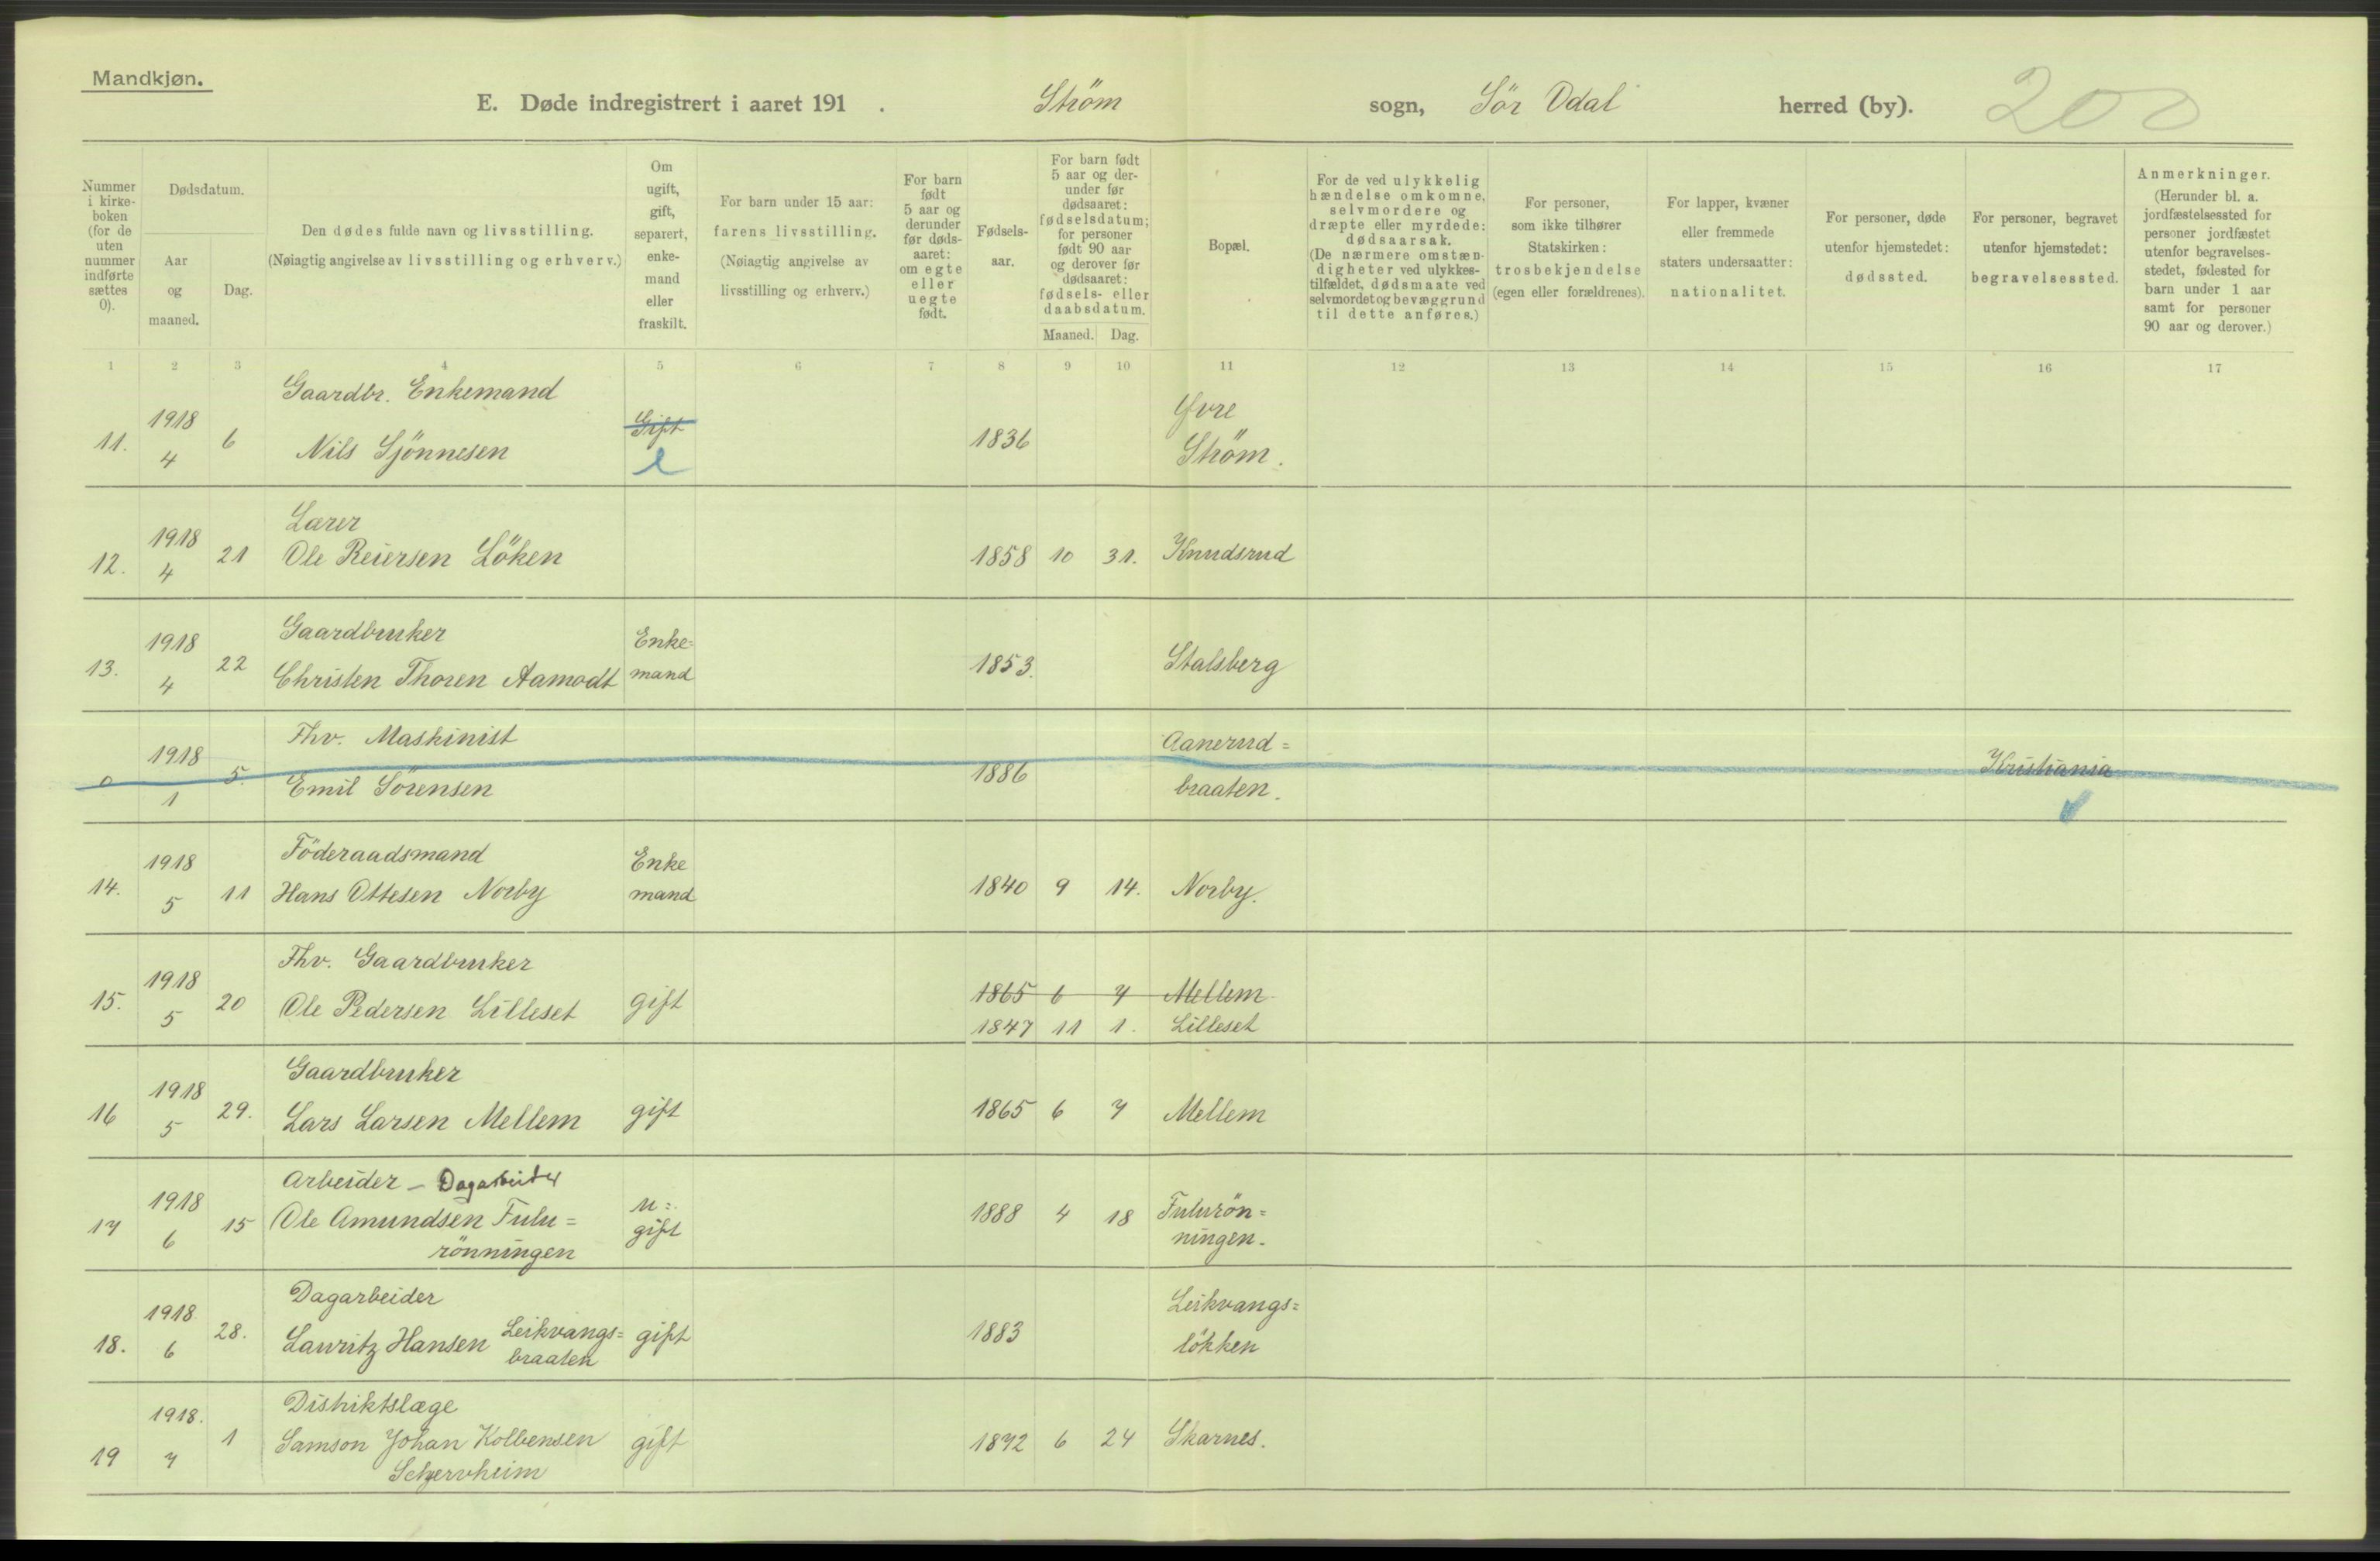 Mandkjøn.
E. Døde indregistrert i aaret 191 . Ström sogn, Sör Odal herred (by). 200
Nummer i kirke- boken (for de uten nummer indførte sættes 0).
Dødsdatum.
Aar og maaned.
Dag.
Den dødes fulde navn og livsstilling.
(Nøiagtig angivelse av livsstilling og erhverv.)
Om ugift, gift, separert, enke- mand eller fraskilt.
For barn under 15 aar:
farens livsstilling.
(Nøiagtig angivelse av livsstilling og erhverv.)
For barn født 5 aar og derunder før døds- aaret: om egte eller uegte født.
Fødsels- aar.
For barn født 5 aar og der- under før dødsaaret: fødselsdatum; for personer født 90 aar og derover før dødsaaret: fødsels- eller daabsdatum.
Maaned. Dag.
Bopæl.
For de ved ulykkelig hændelse omkomne, selvmordere og dræpte eller myrdede: dødsaarsak. (De nærmere omstæn- digheter ved ulykkes- tilfældet, dødsmaate ved selvmordet og bevæggrund til dette anføres.)
For personer, som ikke tilhører Statskirken: trosbekjendelse (egen eller forældrenes).
For lapper, kvæner eller fremmede staters undersaatter: nationalitet.
For personer, døde utenfor hjemstedet: dødssted.
For personer, begravet utenfor hjemstedet: begravelsessted.
Anmerkninger. (Herunder bl. a. jordfæstelsessted for personer jordfæstet utenfor begravelses- stedet, fødested for barn under 1 aar samt for personer 90 aar og derover.)
1 2 3 4 5 6 7 8 9 10 11 12 13 14 15 16 17
Gaardbr. Enkemand
11. 1918 4 6 Nils Sjönnesen Gift e 1836 Yvre Ström.
Lærer
12. 1918 4 21 Ole Reiersen Löken 1858 10 31. Knudsrud
Gaardbruker
13. 1918 4 22 Christen Thoren Aamodt Enke= mand 1853. Stalsberg
Fhv. Maskinist
0 1918 1 5. Emil Sörensen 1886 Aanerud= braaten. Kristiania
Föderaadsmand
14. 1918 5 11 Hans Ottesen Norby Enke mand 1840 9 14. Norby.
Fhv. Gaardbruker
15. 1918 5 20 Ole Pedersen Lilleset gift 1865 6 7 Mellem
1847 11 1. Lilleset
Gaardbruker
16 1918 5 29. Lars Larsen Mellem gift 1865 6 7 Mellem
Arbeider – Dagarbeider
17 1918 6 15 Ole Amundsen Fulu= rönningen u= gift 1888 4 18 Fulurön= ningen.
Dagarbeider
18. 1918 6 28. Lauritz Hansen Leikvangs= braaten gift 1883 Leikvangs= lökken
Distriktslæge
19 1918. 7 1 Samson Johan Kolbensen gift 1872 6 24 Skarnes.